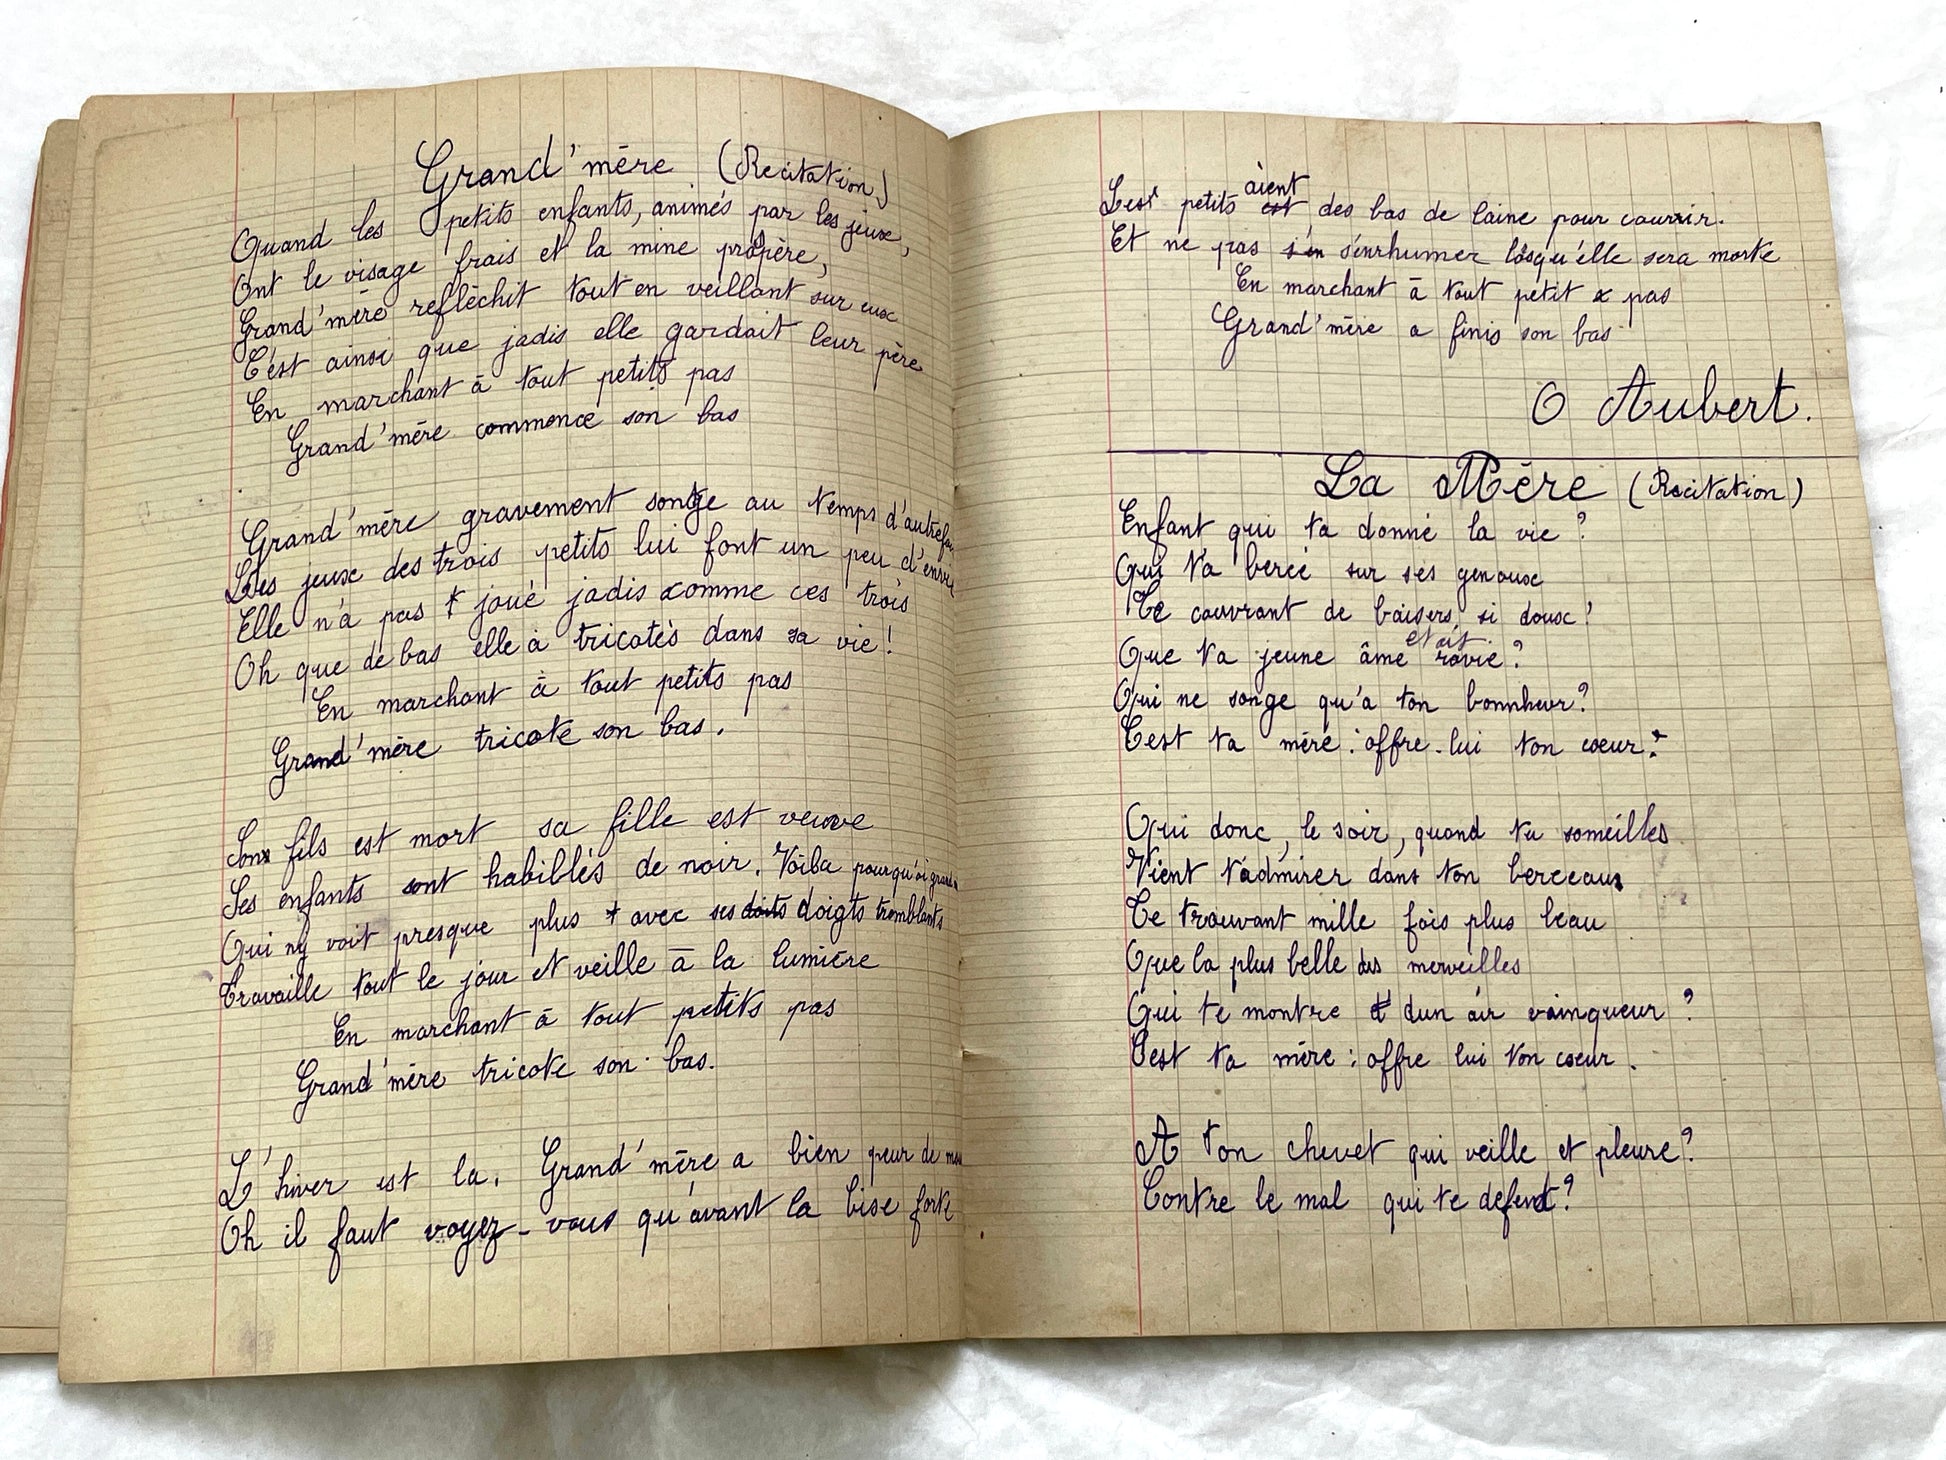 Grand'mère (Recitation)
Quand les petits enfants, animés par les jeux,
Ont le visage frais et la mine propère,
Grand'mère reflèchit tout en veillant sur eux
C'est ainsi que jadis elle gardait leur père
En marchant à tout petits pas
Grand'mère commence son bas
Grand'mère gravement songe au temps d'autrefois
Les jeux des trois petits lui font un peu d'envie
Elle n'a pas joué jadis comme ces trois
Oh que de bas elle à tricotés dans sa vie!
En marchant à tout petits pas
Grand'mère tricote son bas.
Son fils est mort sa fille est veuve
Ses enfants sont habillés de noir. Voila pourqu'oi grand
Qui ny voit presque plus avec ses doits doigts tremblants
Travaille tout le jour et veille à la lumière
En marchant à tout petits pas
Grand'mère tricote son bas.
L'hiver est la. Grand'mère a bien peur de
Oh il faut voyez-vous qu'avant la bise forte
Les petits est aient des bas de laine pour courrir.
Et ne pas s'en s'enrhumer losqu'elle sera morte
En marchant à tout petit pas
Grand'mère a finis son bas
O Aubert.
La Mère (Recitation)
Enfant qui ta donné la vie?
Qui t'a bercé sur ses genoux
Te couvrant de baisers si doux!
Que ta jeune âme etait ravie?
Qui ne songe qu'a ton bonnheur?
C'est ta mère: offre-lui ton coeur:
Qui donc, le soir, quand tu someilles
Vient t'admirer dans ton berceau
Te trouvant mille fois plus beau
Que la plus belle des merveilles
Qui te montre dun air vainqueur?
C'est ta mère: offre lui ton coeur.
A ton chevet qui veille et pleure?
Contre le mal qui te defend?